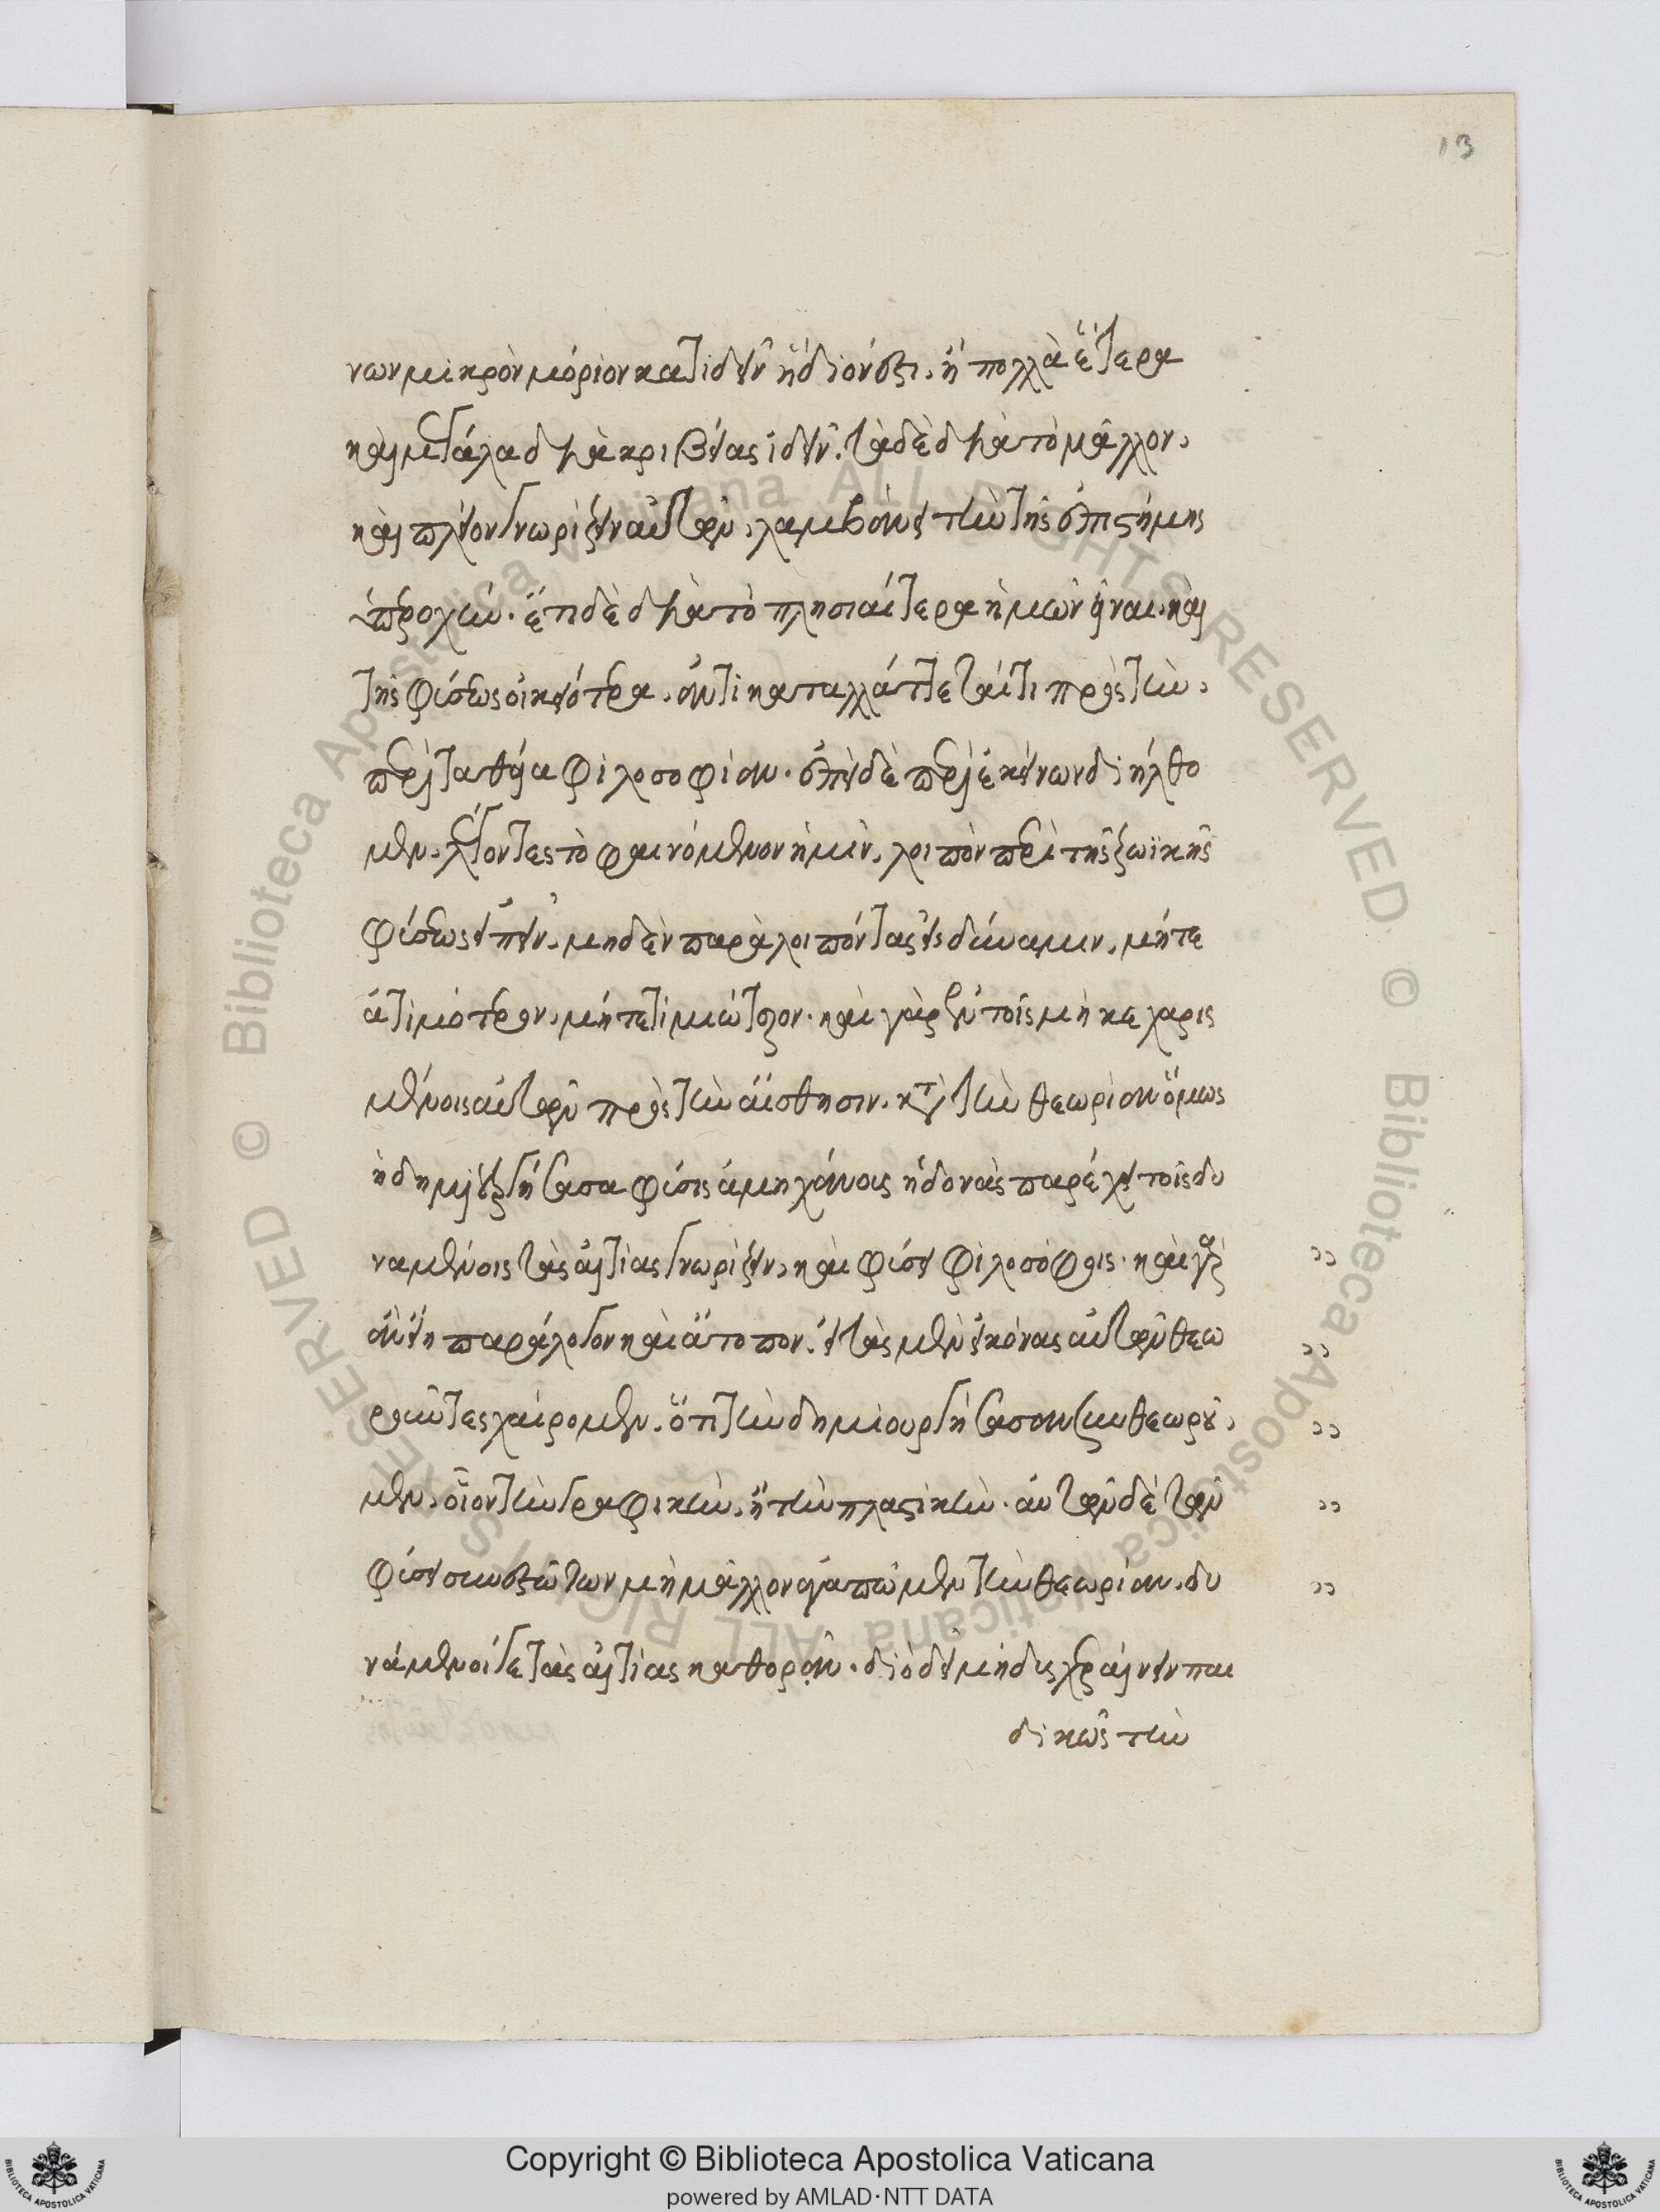 13
νων μικρὸν μόριον κατιδεῖν ἥδιόν ἐστι, ἢ πολλὰ ἕτερα
καὶ μεγάλα δι᾽ ἀκριβείας ἰδεῖν. τὰ δὲ διὰ τὸ μᾶλλον,
καὶ πλεῖον γνωρίζειν αὐτῶν, λαμβάνει τὴν τῆς ἐπιστήμης
ὑπεροχήν. ἔτι δὲ διὰ τὸ πλησιαίτερα ἡμῶν εἶναι, καὶ
τῆς φύσεως οἰκειότερα, ἀντικαταλλάττεταί τι πρὸς τὴν,
περὶ τὰ θεῖα φιλοσοφίαν. ἐπεὶ δὲ περὶ ἐκείνων διήλθο
μεν, λέγοντες τὸ φαινόμενον ἡμῖν, λοιπὸν περὶ τῆς ζωϊκῆς
φύσεως εἰπεῖν, μηδὲν παραλοιπόντας εἰς δύναμιν, μήτε
ἀτιμότερον, μήτε τιμιώτερον. καὶ γὰρ ἐν τοῖς μὴ κεχαρις
μένοις αὐτῶν πρὸς τὴν αἴσθησιν, κατὰ τὴν θεωρίαν ὅμως
ἡ δημιουργήσασα φύσις ἀμηχάνους ἡδονὰς παρέχει τοῖς δυ
ναμένοις τὰς αἰτίας γνωρίζειν, καὶ φύσει φιλοσόφοις. καὶ γὰρ
ἂν εἴη παράλογον καὶ ἄτοπον, εἰ τὰς μὲν εἰκόνας αὐτῶν θεω
ροῦντες χαίρομεν, ὅτι τὴν δημιουργήσασαν συνθεωροῦ,
μεν, οἷον τὴν γραφικὴν, ἢ τὴν πλαστικὴν. αὐτῶν δὲ τῶν
φύσει συνεστώτων μὴ μᾶλλον ἀγαπῶμεν τὴν θεωρίαν, δυ
νάμενοί γε τὰς αἰτίας καθορᾶν. διὸ δεῖ μὴ δυσχεραίνειν παι
δικῶς τὴν
Copyright © Biblioteca Apostolica Vaticana
powered by AMLAD·NTT DATA